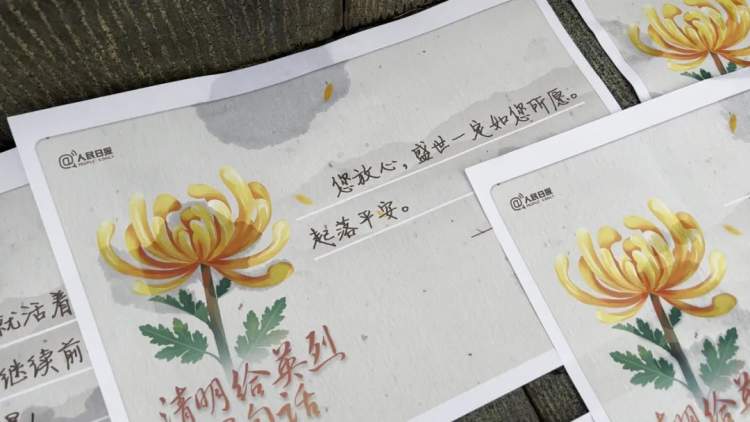 @人民日报
PEOPLE'S DAILY
您放心，盛世一定如您所愿。
起落平安。
清明给英烈
句话
就活着
继续前
@人民日报
清明给英烈